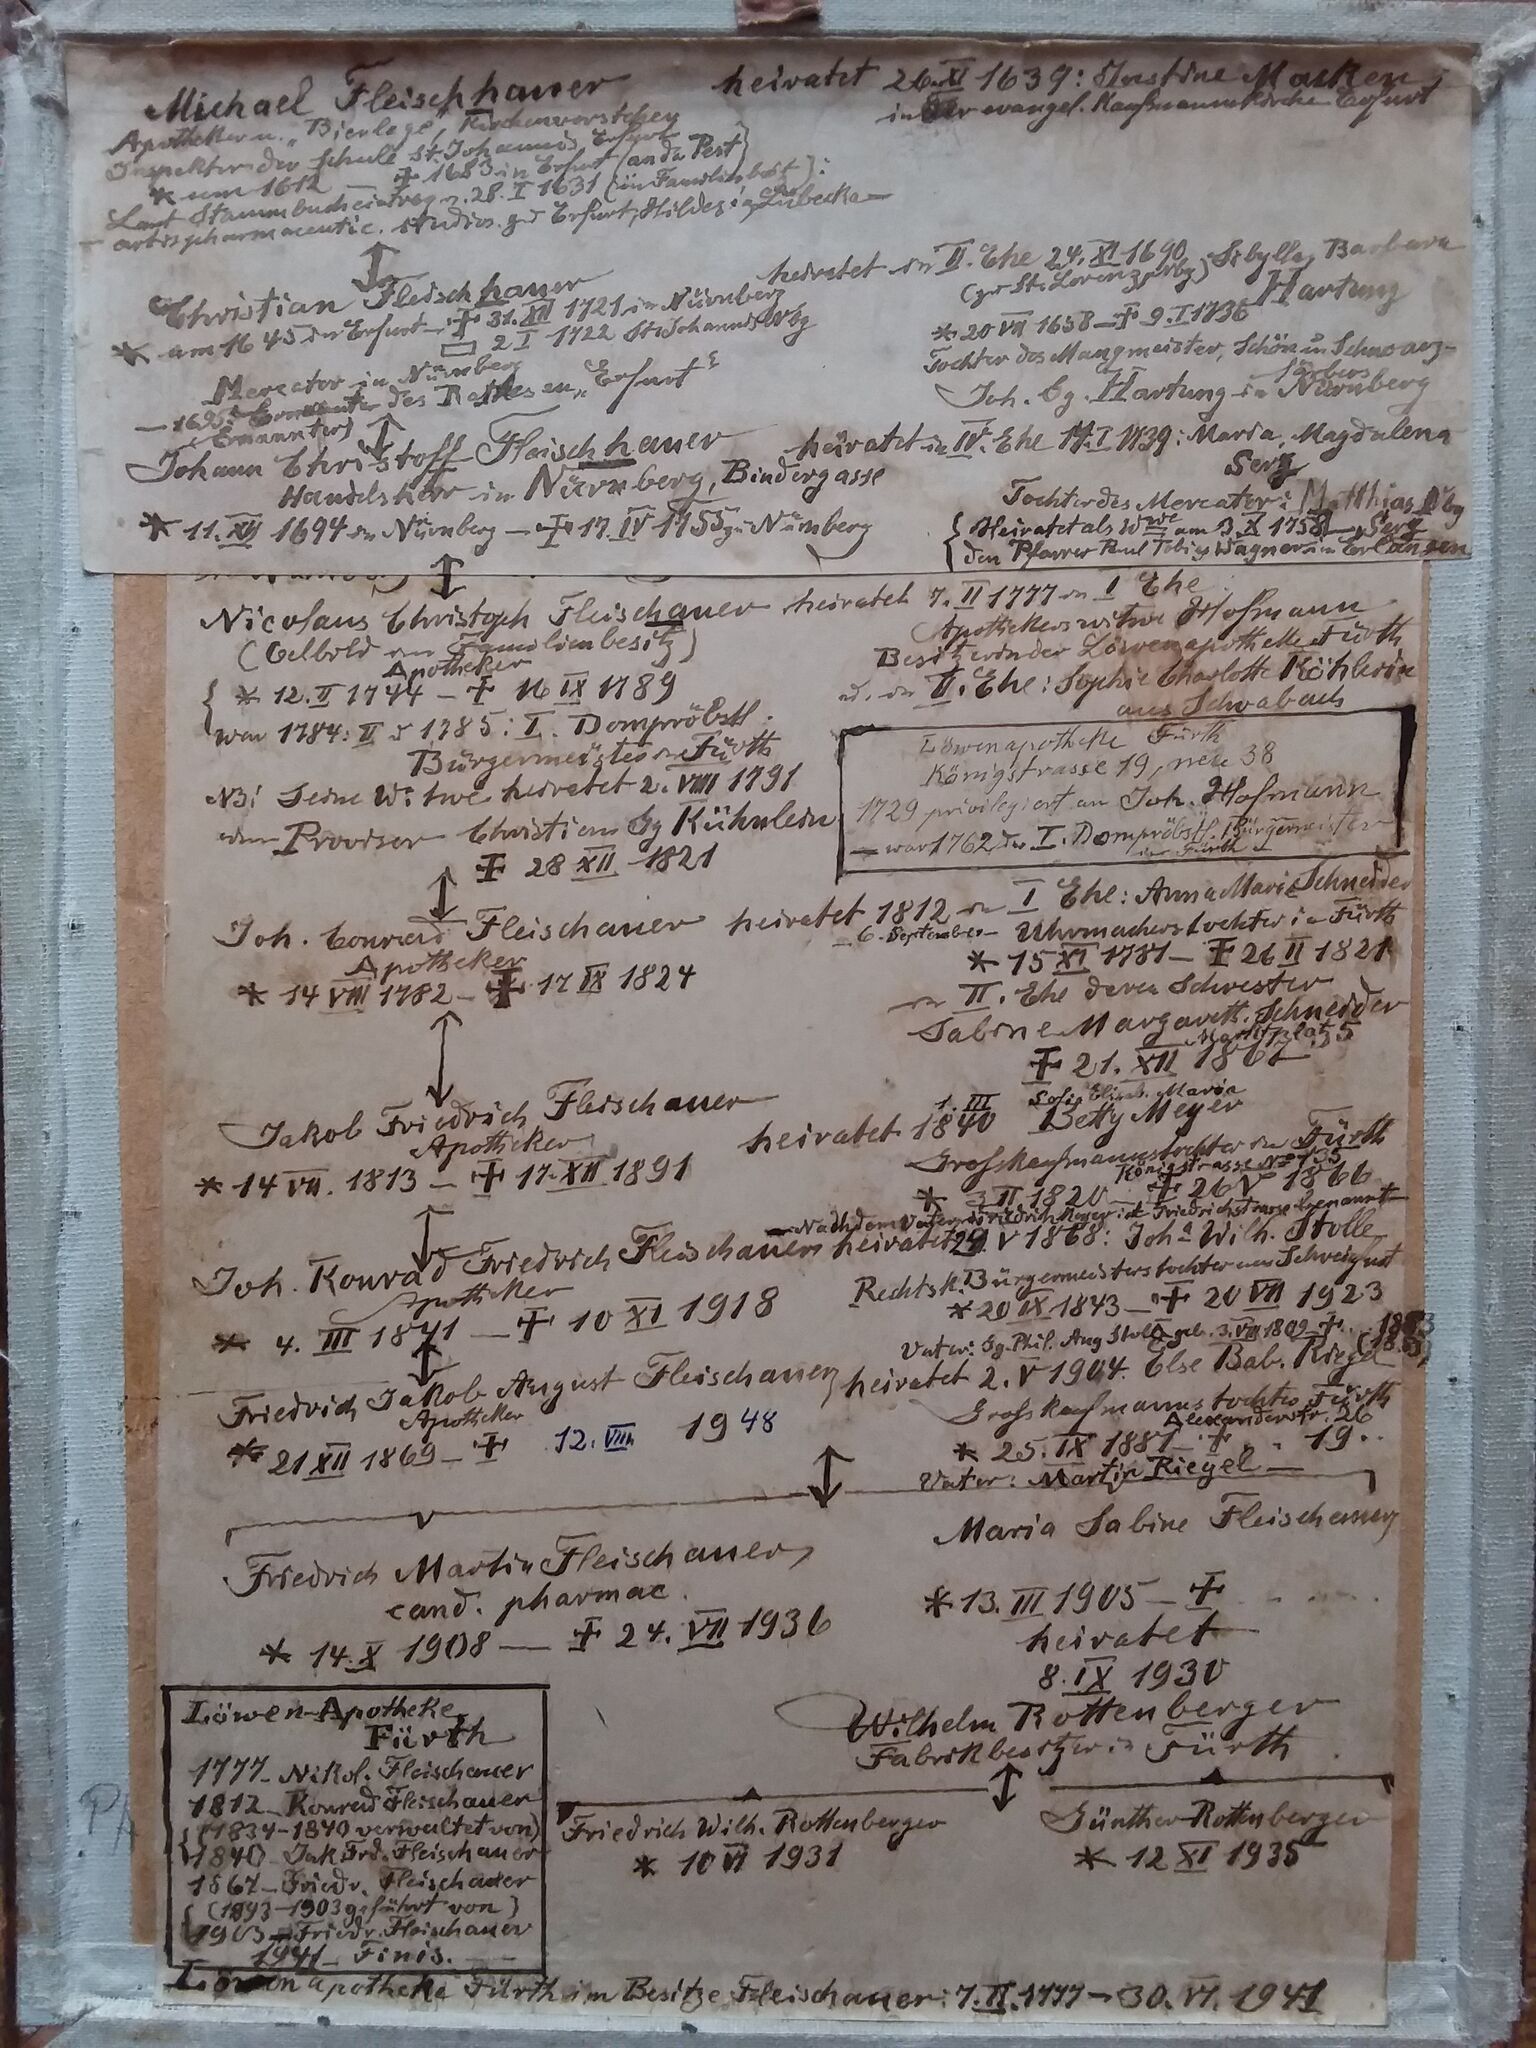 Michael Fleischhauer heiratet 26. XI 1639: Justine Marken
in der evangel. Kaufmannskirche Erfurt
Apotheker u. "Bierlage", Kirchenvorsteher
Inspektor der Schule St. Johannis, Erfurt
* um 1612 — + 1683 in Erfurt (an der Pest)
Laut Stammbucheintrag v. 28. I 1631 (im Familienbesitz):
artis pharmaceutic. studios. zu Erfurt, Lübecka —
Christian Fleischhauer heiratet in II. Ehe 24. XI 1690 Sibylla, Barbara
(zu St. Lorenz, Nbg) Hartung
* am 1645 in Erfurt — + 31. XII 1721 in Nürnberg
2 I 1722 St. Johannis, Nbg
* 20 VII 1658 — + 9. I 1736
Mercator in Nürnberg
Tochter des Mangmeister, Schön u Schwarz-
färbers
— 1695: des Rathes zu "Erfurt"
(Ernannter)
Joh. Gg. Hartung in Nürnberg
Johann Christoff Fleischhauer heiratet in IV. Ehe 14. I 1739: Maria, Magdalena
Serz
Handelsherr in Nürnberg, Bindergasse
Tochter des Mercator: Matthias Nbg
Serz
* 11. XII 1694 in Nürnberg — + 17. IV 1755 zu Nürnberg
Heiratet als Wwe am 3. X 1758
den Pfarrer Paul Tobias Wagner in Erlangen
Nicolaus Christoph Fleischauer heiratet 7. II 1777 in I Ehe
Apothekerswitwe Hofmann
(Oelbild im Familienbesitz)
Besitzerin der Löwenapotheke Fürth
Apotheker
* 12. II 1744 — + 16 IX 1789
u. in II. Ehe: Sophie Charlotte Köhlerin
aus Schwabach
war 1784: II u 1785: I. Dompröbstl.
Bürgermeister in Fürth
Löwenapotheke Fürth
Königstrasse 19, neu 38
1729 privilegiert an Joh. Hofmann
— war 1762 der I. Dompröbstl. Bürgermeister
in Fürth
NB: Seine Witwe heiratet 2. VIII 1791
den Provisor Christian Gg Kühnlein
+ 28 XII 1821
Joh. Conrad Fleischauer heiratet 1812 in I Ehe: Anna Marie Schneider
— 6. September — Uhrmacherstochter in Fürth
Apotheker
* 14 VIII 1782 — + 17 IX 1824
* 15 XI 1781 — + 26 II 1821
in II. Ehe deren Schwester
Sabine Margareth. Schneider
Marktplatz 5
+ 21. XII 1862
Jakob Friedrich Fleischauer heiratet 1. III 1840 Sofie Elisab. Maria
Betty Meyer
Apotheker
Grosskaufmannstochter in Fürth
Königstrasse No 135
* 14 VII. 1813 — + 17. XII 1891
* 3 II 1820 — + 26 V 1866
— Nach dem Vater Friedrich Meyer ist Friedrichstrasse benannt —
Joh. Konrad Friedrich Fleischauer heiratet 29. V 1868: Joha Wilh. Stolle
Rechtsk. Bürgermeisterstochter aus Schweinfurt
Apotheker
* 4. III 1841 — + 10 XI 1918
* 20 IX 1843 — + 20 VII 1923
Vater: Gg. Phil. Aug Stolle geb. 3. VII 1809 +
Friedrich Jakob August Fleischauer, heiratet 2. V 1904. Else Bab. Riegel
Apotheker
Grosskaufmannstochter Fürth
Alexanderstr. 26
* 21 XII 1869 — + 12. VIII 1948
* 25. IX 1881 — + . . 19..
Vater: Martin Riegel —
Friedrich Martin Fleischauer,
cand. pharmac.
* 14. X 1908 — + 24. VII 1936
Maria Sabine Fleischauer,
* 13. III 1905 — +
heiratet
8. IX 1930
Wilhelm Rottenberger
Fabrikbesitzer in Fürth
Friedrich Wilh. Rottenberger
* 10 VI 1931
Günther Rottenberger
* 12 XI 1935
Löwen-Apotheke
Fürth
1777 — Nikol. Fleischauer
1812 — Konrad Fleischauer
(1834-1840 verwaltet von)
1840 — Jak Frd. Fleischauer
1867 — Friedr. Fleischauer
(1893-1903 geführt von)
1903 — Friedr. Fleischauer
1941 — Finis.
Löwenapotheke Fürth im Besitze Fleischauer: 7. II. 1777 — 30. VI. 1941